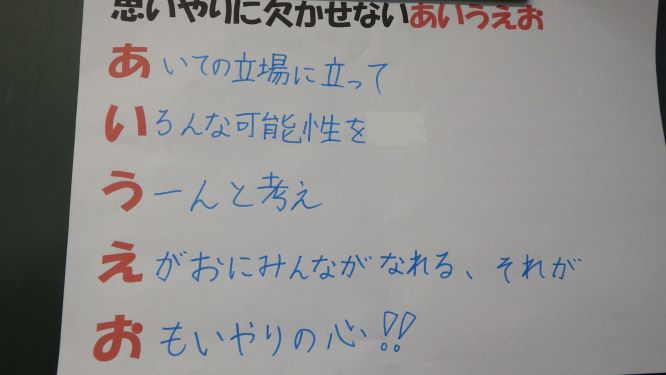 思いやりに欠かせないあいうえお
あいての立場に立って
いろんな可能性を
うーんと考え
えがおにみんながなれる、それが
おもいやりの心!!